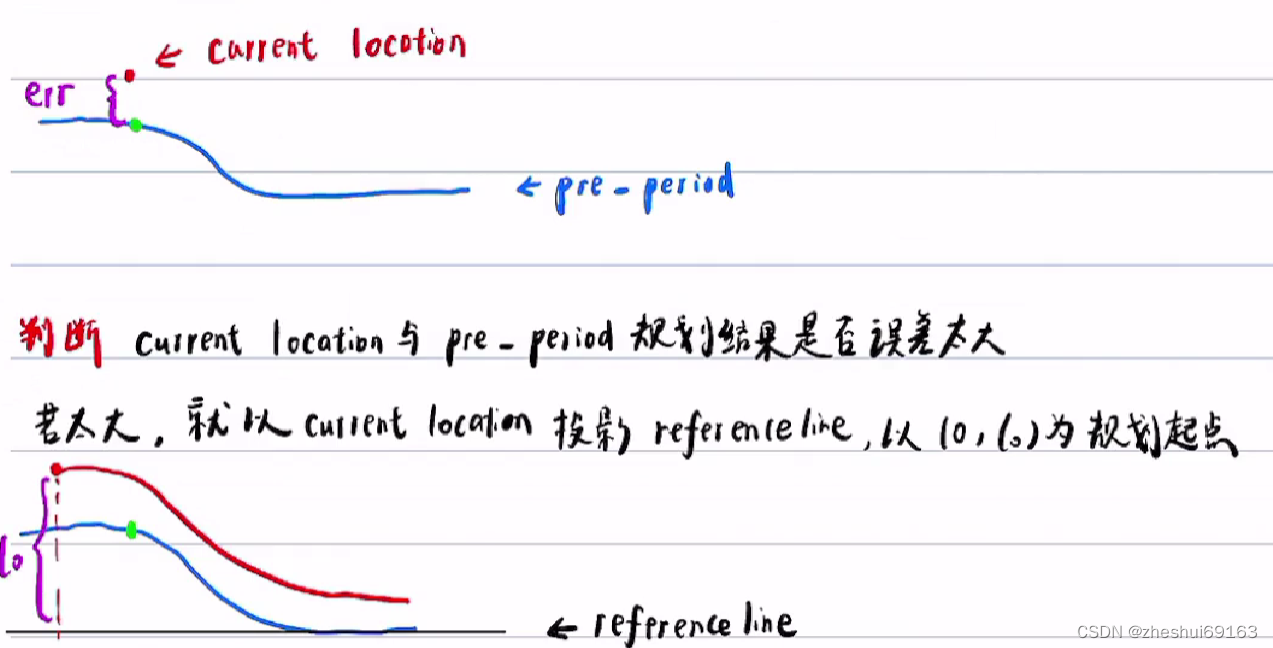 ← current location
err
← pre-period
判断 current location与 pre-period 规划结果是否误差太大
若太大，就以current location 投影 reference line, 以 (0, l₀)为规划起点
l₀
← reference line
CSDN @zheshui69163